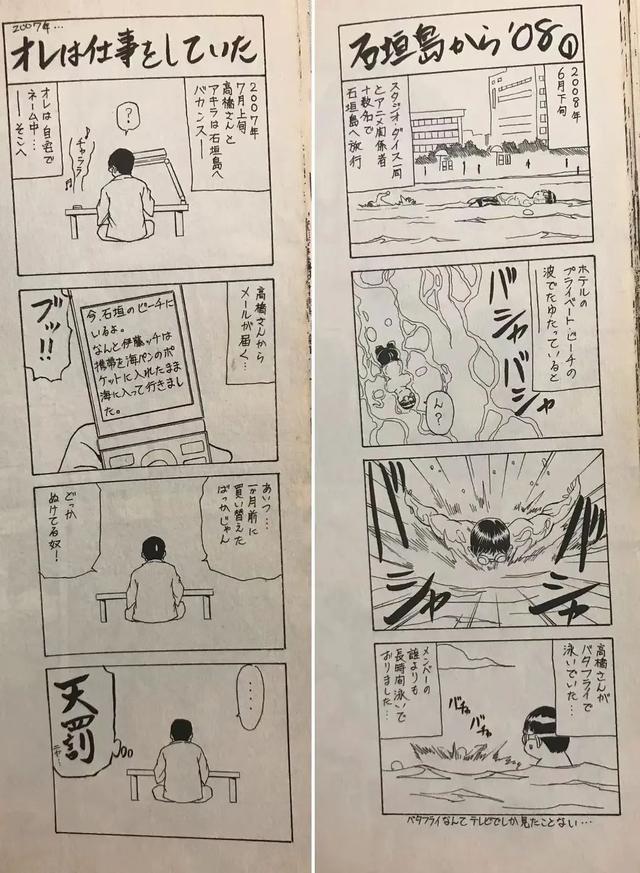 2007年…
オレは仕事をしていた
2007年
7月上旬
高橋さんと
アキラは石垣島へ
バカンス——
オレは自宅で
ネーム中…
——そこへ
？
♪
チャララ
♪
高橋さんから
メールが届く…
今、石垣のビーチに
いるよ。
なんと伊藤ッチは
携帯を海パンのポ
ケットに入れたまま
海に入って行きまし
た。
ブッ!!
あいつ…
一か月前に
買い替えた
ばっかじゃん
どっか
ぬけてる奴！
・・・・
天罰
ニヤ…
石垣島から'08①
2008年
6月下旬
スタジオ・ダイス一同
とアニメ関係者
十数名で
石垣島へ旅行
ホテルの
プライベート・ビーチの
波でたゆたっていると
バシャバシャ
ん？
シャ
シャ
高橋さんが
バタフライで
泳いでいた…
メンバーの
誰よりも
長時間泳いで
おりました…
バチャ
バチャ
バタフライなんてテレビでしか見たことない…